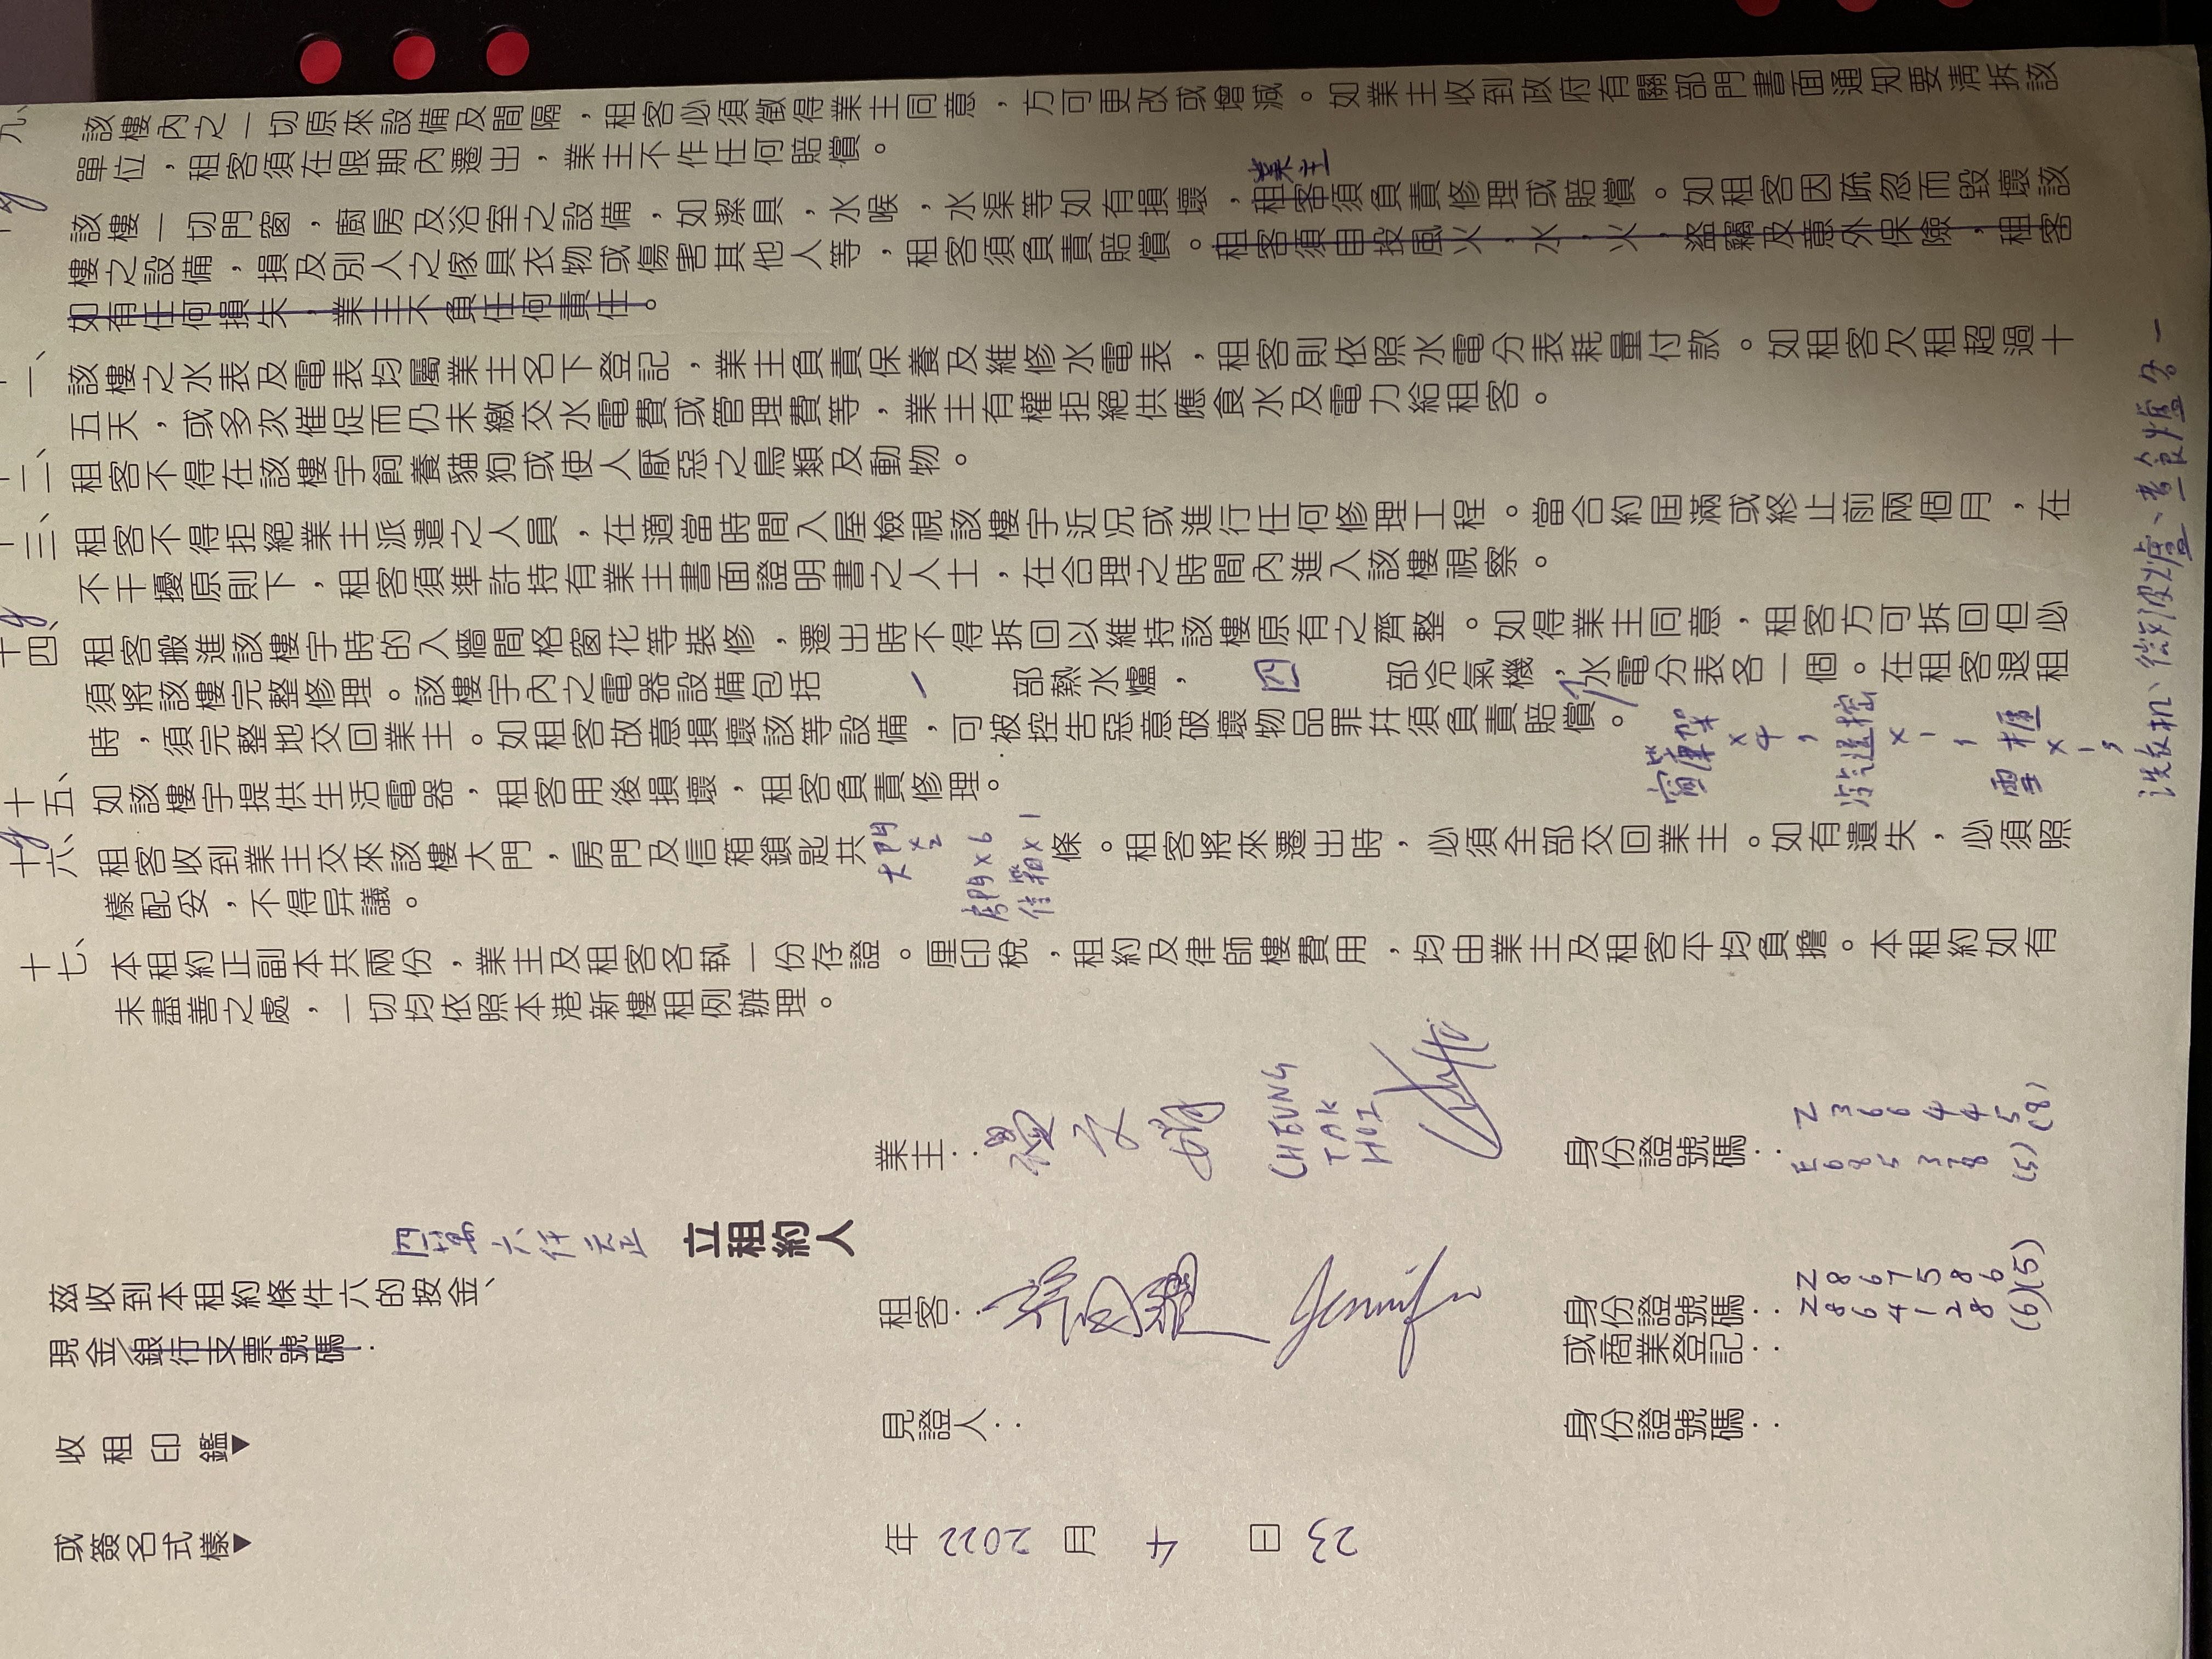 九、該樓內之一切原來設備及間隔，租客必須徵得業主同意，方可更改或增減。如業主收到政府有關部門書面通知要清拆該
單位，租客須在限期內遷出，業主不作任何賠償。
業主
該樓一切門窗，廚房及浴室之設備，如潔具，水喉，水渠等如有損壞，租客須負責修理或賠償。如租客因疏忽而毀壞該
樓之設備，損及別人之傢具衣物或傷害其他人等，租客須負責賠償。租客須自投風火，水，火，盜竊及意外保險，租客
如有任何損失，業主不負任何責任。
十一、該樓之水表及電表均屬業主名下登記，業主負責保養及維修水電表，租客則依照水電分表耗量付款。如租客欠租超過十
五天，或多次催促而仍未繳交水電費或管理費等，業主有權拒絕供應食水及電力給租客。
十二、租客不得在該樓宇飼養貓狗或使人厭惡之鳥類及動物。
十三、租客不得拒絕業主派遣之人員，在適當時間入屋檢視該樓宇近況或進行任何修理工程。當合約屆滿或終止前兩個月，在
不干擾原則下，租客須準許持有業主書面證明書之人士，在合理之時間內進入該樓視察。
十四、租客搬進該樓宇時的入牆間格窗花等裝修，遷出時不得拆回以維持該樓原有之齊整。如得業主同意，租客方可拆回但必
須將該樓完整修理。該樓宇內之電器設備包括 一 部熱水爐，四 部冷氣機，水電分表各一個。在租客退租
時，須完整地交回業主。如租客故意損壞該等設備，可被控告惡意破壞物品罪幷須負責賠償。
窗簾架 x 4，冷氣遙控 x 1，雪櫃 x 1，
洗衣机、微波爐、煮食爐各一
十五、如該樓宇提供生活電器，租客用後損壞，租客負責修理。
十六、租客收到業主交來該樓大門，房門及信箱鎖匙共 大門 x 2 房門 x 6 信箱 x 1 條。租客將來遷出時，必須全部交回業主。如有遺失，必須照
樣配妥，不得異議。
十七、本租約正副本共兩份，業主及租客各執一份存證。厘印稅，租約及律師樓費用，均由業主及租客平均負擔。本租約如有
未盡善之處，一切均依照本港新樓租例辦理。
業主：
CHEUNG
TAK
HOI
身份證號碼：
Z366445(8)
E08538(5)
四萬六仟元正
立租約人
茲收到本租約條件六的按金、
現金／銀行支票號碼：
租客：
Jennifer
身份證號碼：
或商業登記：
Z867586(5)
Z864128(6)
見證人：
身份證號碼：
收租印鑑▼
或簽名式樣▼
年 2022 月 4 日 23